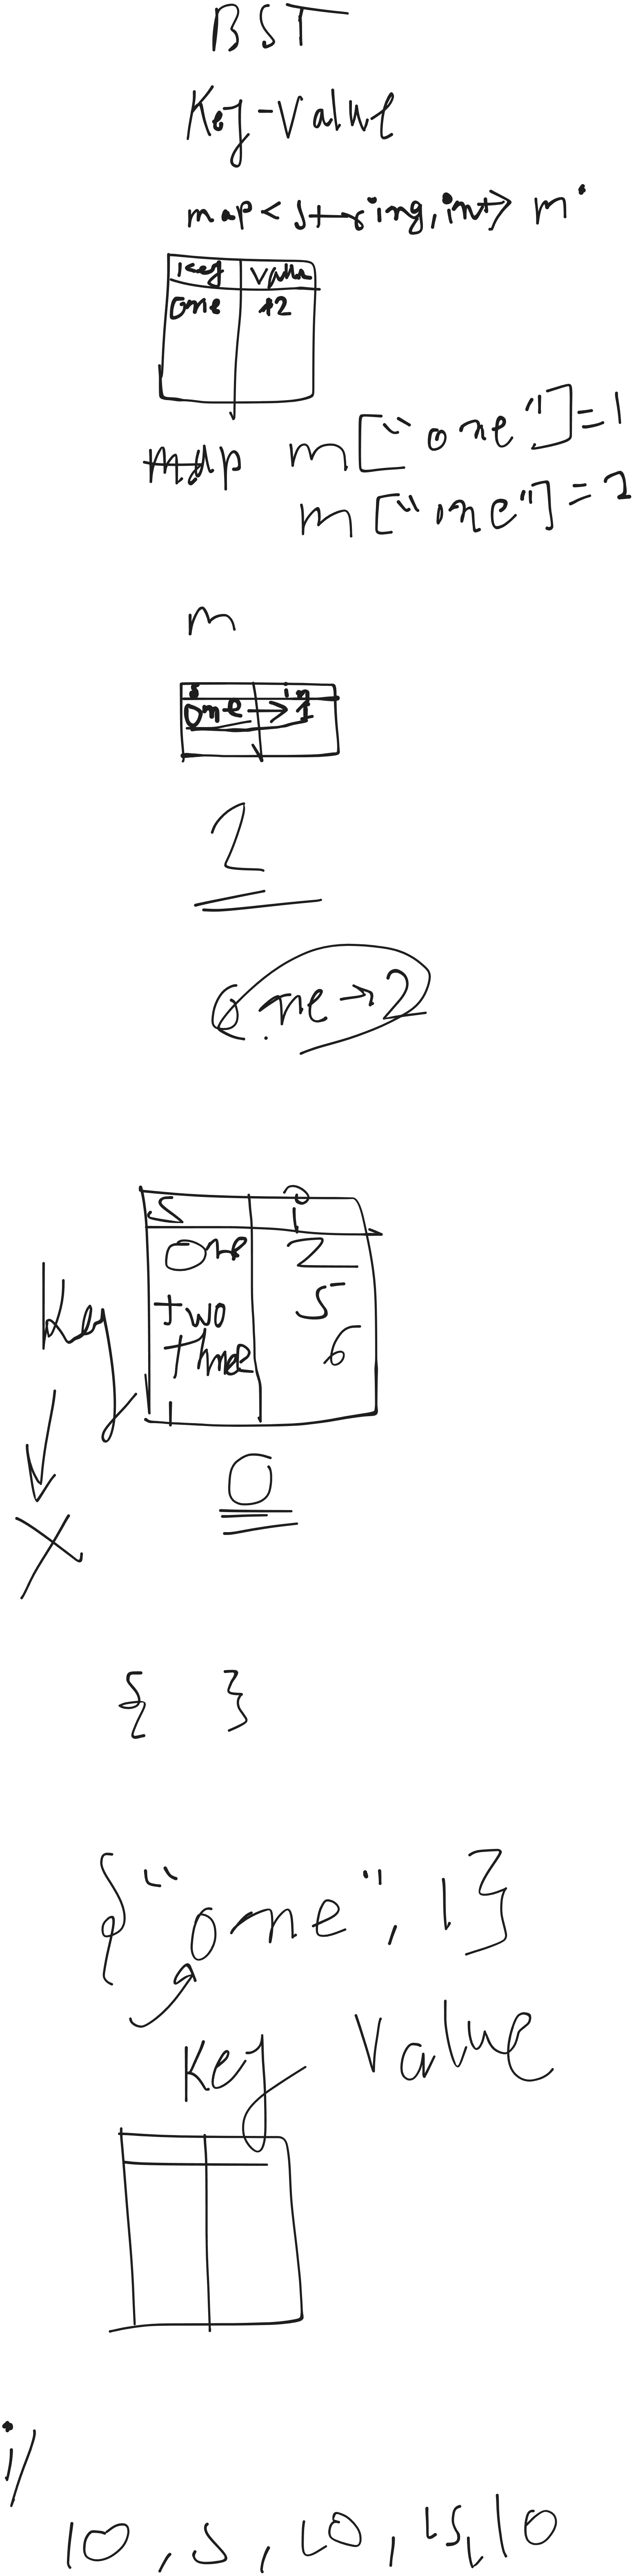 BST
Key-Value
map < string, int> m
Key Value
one 12
map m["one"]=1
m["one"]=2
m
s in
one → 1
2
one → 2
s i
one 2
two 5
three 6
Key
0
{ }
{"one", 1}
Key Value
i/
10, 5, 10, 15, 10